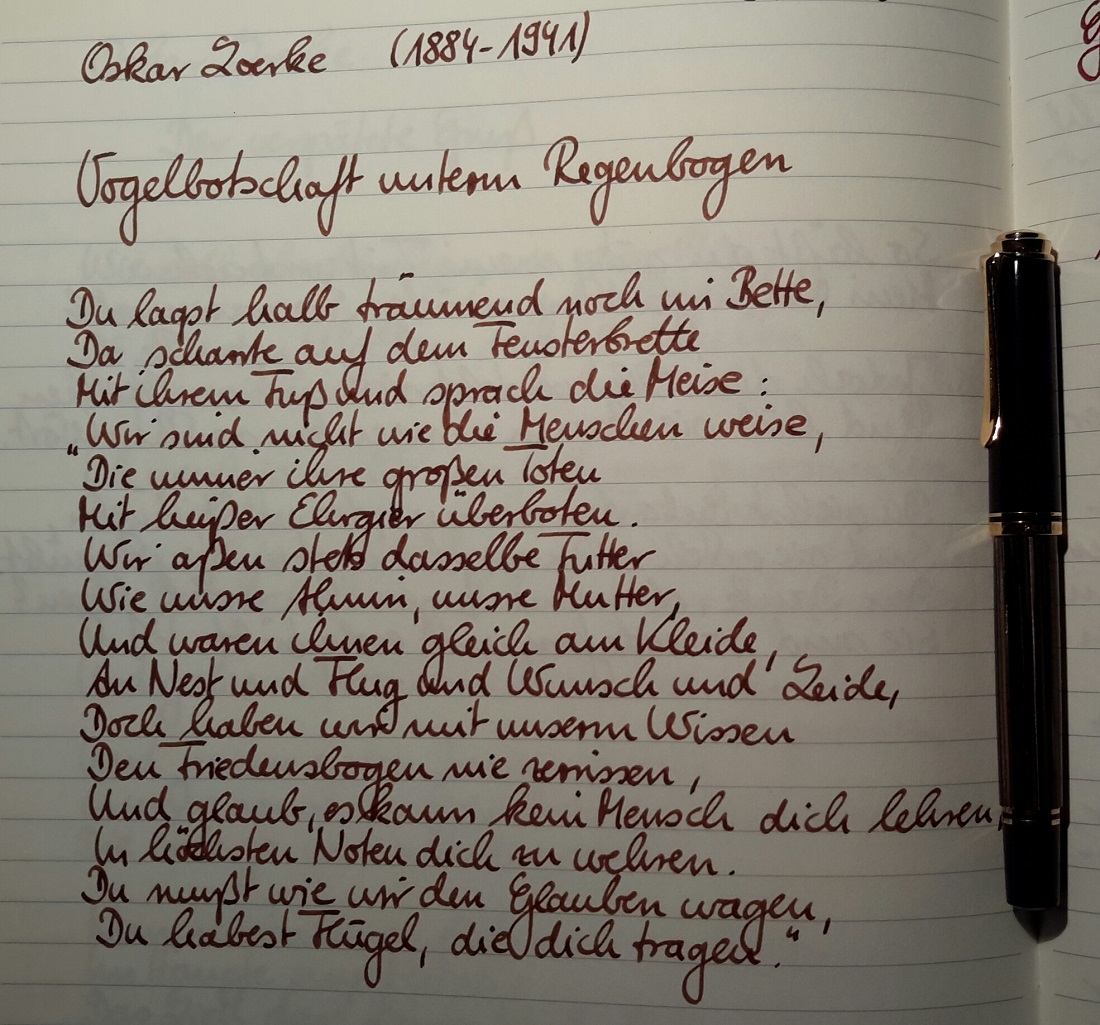 Oskar Loerke (1884-1941)
Vogelbotschaft unterm Regenbogen
Du lagst halb träumend noch im Bette,
Da scharrte auf dem Fensterbrette
Mit ihrem Fuß und sprach die Meise:
„Wir sind nicht wie die Menschen weise,
Die immer ihre großen Toten
Mit heißer Ehrgier überboten.
Wir aßen stets dasselbe Futter
Wie unsre Ahnin, unsre Mutter,
Und waren ihnen gleich am Kleide,
An Nest und Flug und Wunsch und Leide,
Doch haben wir mit unserm Wissen
Den Friedensbogen nie zerrissen,
Und glaub, es kann kein Mensch dich lehren,
In höchsten Noten dich zu wehren.
Du mußt wie wir den Glauben wagen,
Du habest Flügel, die dich tragen."